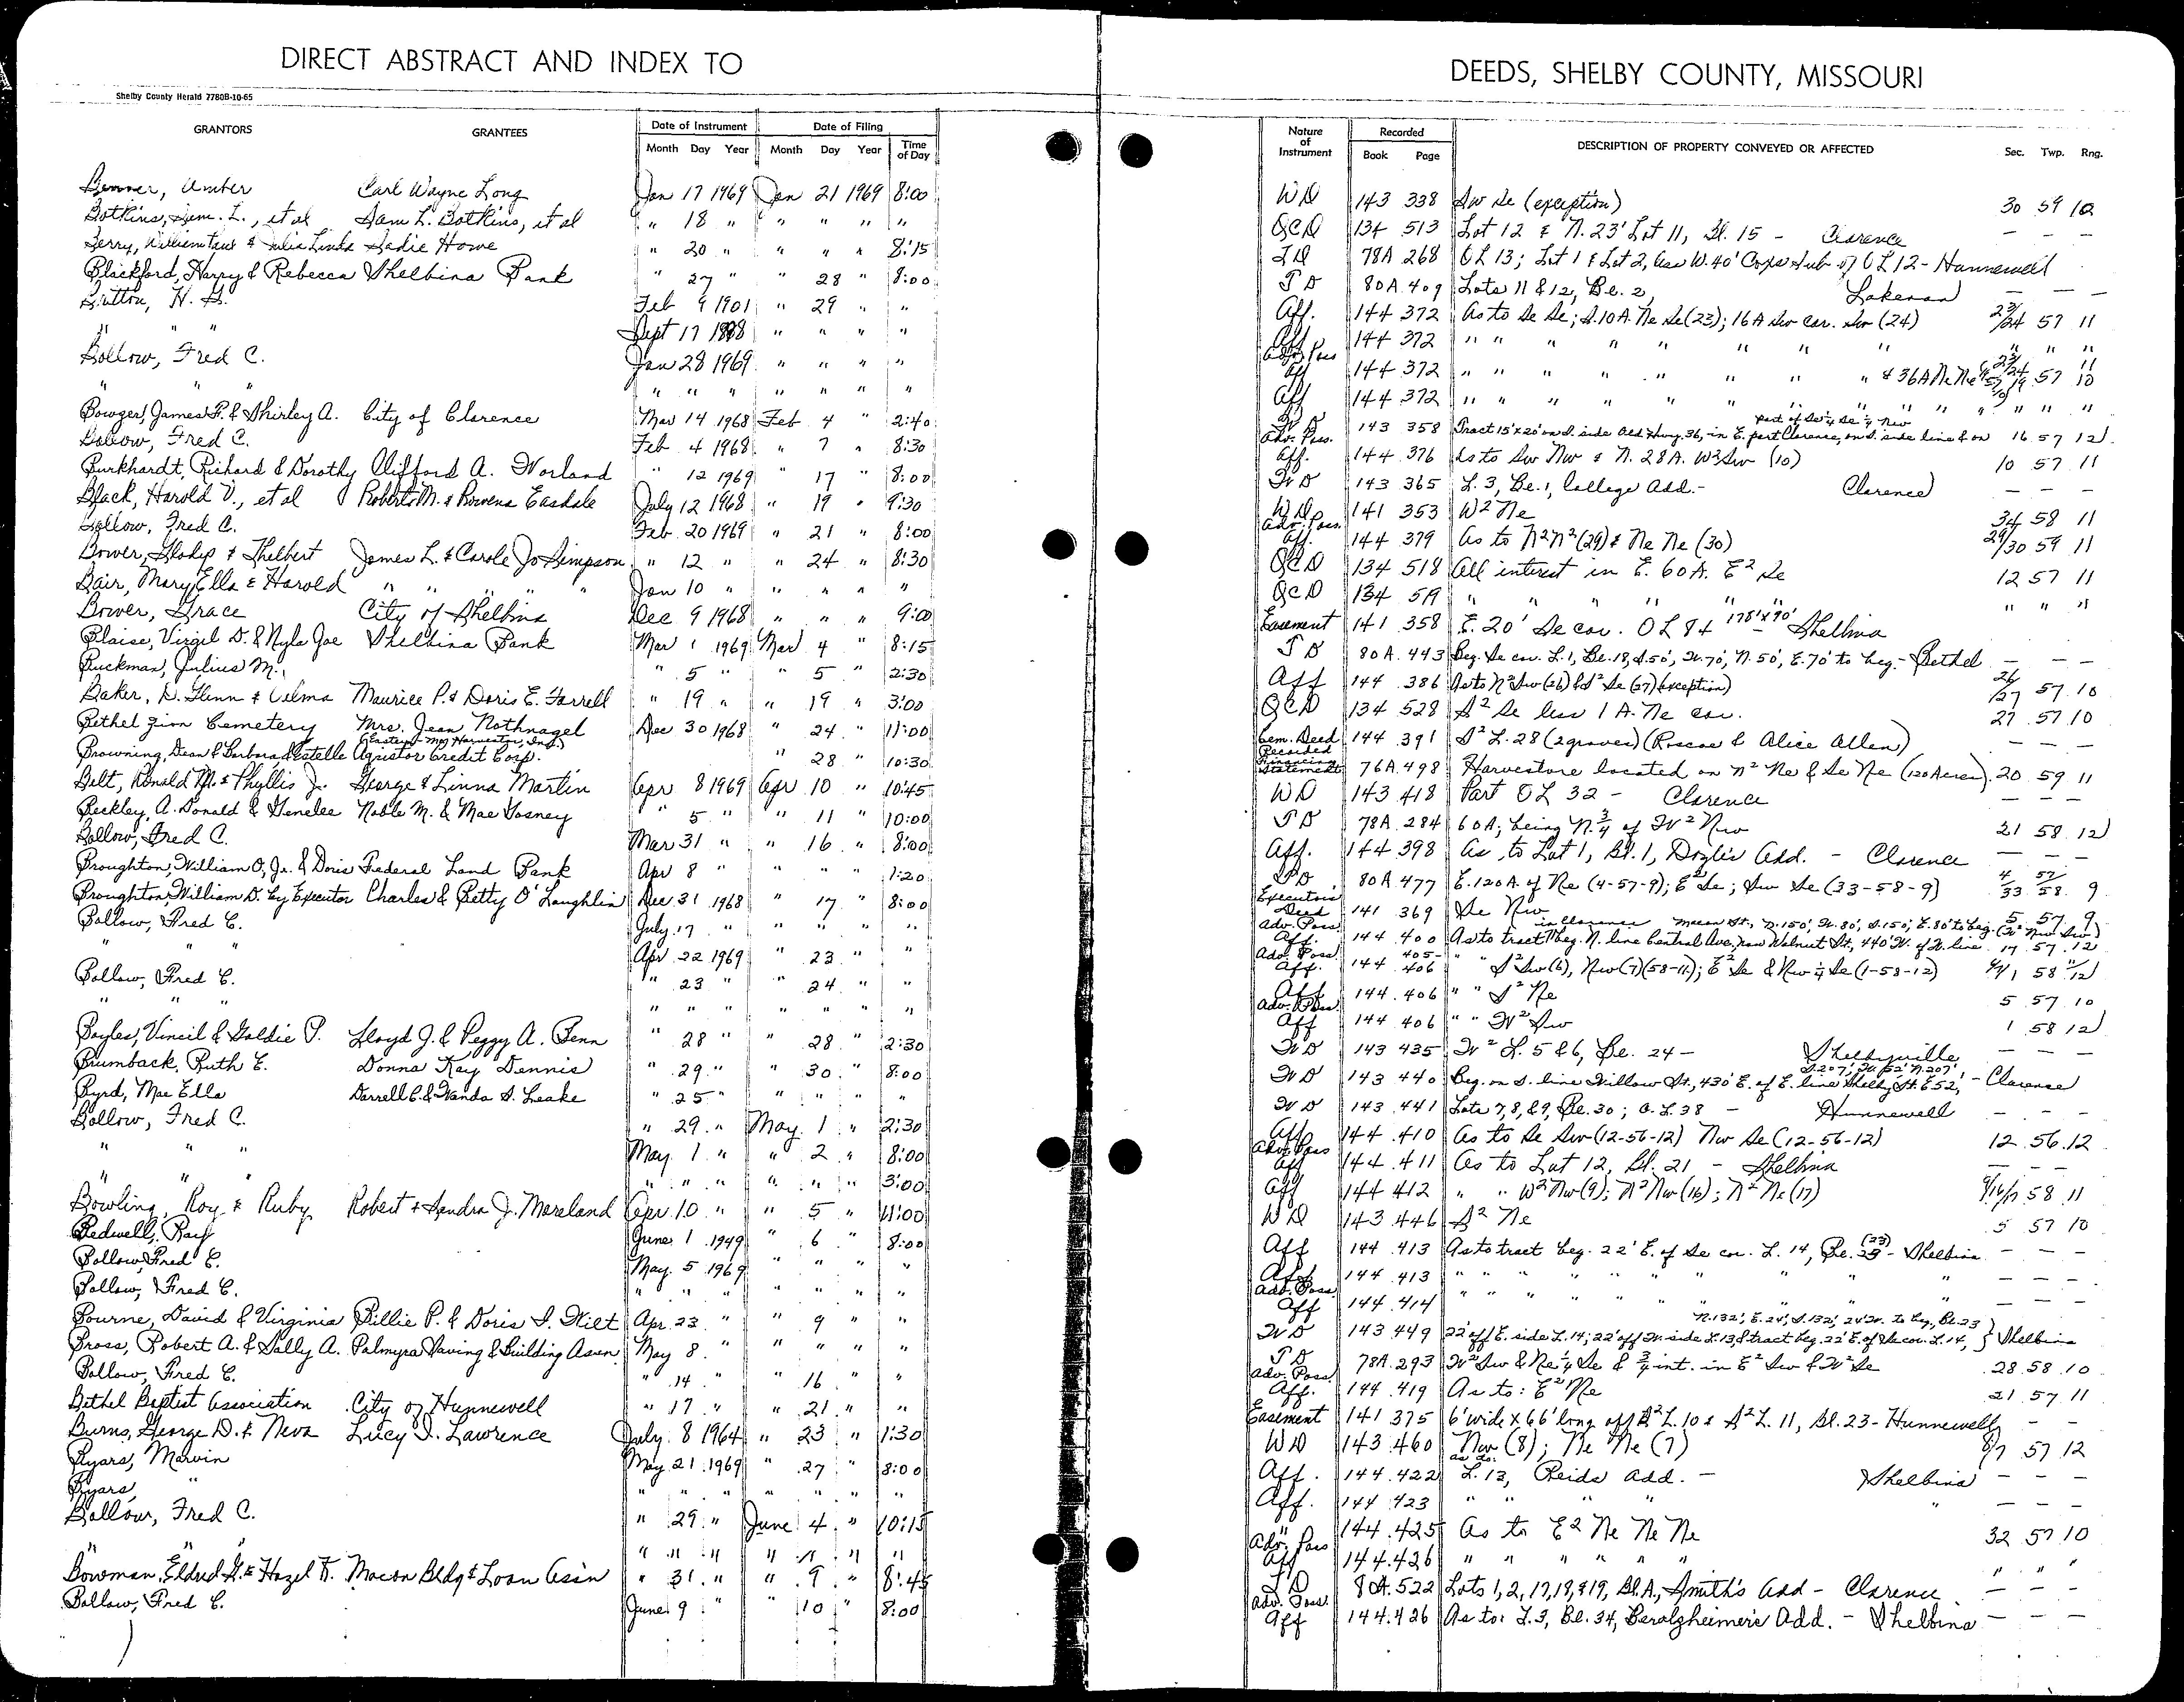 DIRECT ABSTRACT AND INDEX TO
Shelby County Herald 7780B-10-65
GRANTORS GRANTEES Date of Instrument Date of Filing
Month Day Year Month Day Year Time of Day
Benner, Amber Carl Wayne Long Jan 17 1969 Jan 21 1969 8:00
Botkins, Sam. L., et al Sam L. Botkins, et al " 18 " " " " "
Berry, William Paul & Julia Linda Sadie Howe " 20 " " " " 8:15
Blackford, Harry & Rebecca Shelbina Bank " 27 " " 28 " 8:00
Britton, H. H. Feb 9 1901 " 29 " "
" " " Sept 17 1898 " " " "
Bollow, Fred C. Jan 28 1969 " " " "
" " " " " " " " " "
Bowges, James F. & Shirley A. City of Clarence Mar 14 1968 Feb 4 " 2:40
Bollow, Fred C. Feb 4 1968 " 7 " 8:30
Burkhardt, Richard & Dorothy Clifford A. Worland " 12 1969 " 17 " 8:00
Black, Harold V., et al Robert M. & Rowena Easdale July 12 1968 " 19 " 9:30
Bollow, Fred C. Feb. 20 1969 " 21 " 8:00
Bower, Gladys & Thelbert James L. & Carole Jo Simpson " 12 " " 24 " 8:30
Bair, Mary Ella & Harold " " " " " Jan 10 " " " " "
Bower, Grace City of Shelbina Dec 9 1968 " " " 9:00
Blaise, Virgil D. & Nyla Joe Shelbina Bank Mar 1 1969 Mar 4 " 8:15
Buckman, Julius M. " 5 " " 5 " 2:30
Baker, D. Glenn & Velma Maurice P. & Doris E. Farrell " 19 " " 19 " 3:00
Bethel Zion Cemetery Mrs. Jean Nothnagel Dec 30 1968 " 24 " 11:00
(Eastern Mo Harvestor, Inc.)
Browning, Dean & Barbara, & Estelle Agristor Credit Corp. " 28 " 10:30
Belt, Ronald M. & Phyllis J. George & Linna Martin Apr 8 1969 Apr 10 " 10:45
Beckley, A. Donald & Genelee Noble M. & Mae Gosney " 5 " " 11 " 10:00
Bollow, Fred C. Mar 31 " " 16 " 8:00
Broughton, William O, Jr. & Doris Federal Land Bank Apr 8 " " " " 1:20
Broughton, William D. by Executor Charles & Betty O'Laughlin Dec 31 1968 " 17 " 8:00
Bollow, Fred C. July 17 " " " " "
" " " Apr 22 1969 " 23 " "
Bollow, Fred C. " 23 " 24 " "
" " " " " " " " " "
Boyles, Vincil & Goldie P. Lloyd J. & Peggy A. Fenn " 28 " " 28 " 2:30
Brumback, Ruth E. Donna Kay Dennis " 29 " " 30 " 8:00
Byrd, Mae Ella Darrell C. & Wanda S. Leake " 25 " " " " "
Bollow, Fred C. " 29 " May 1 " 2:30
" " " May 1 " " 2 " 8:00
" " " " " " " " " 3:00
Bowling, Roy & Ruby Robert & Sandra J. Moreland Apr 10 " " 5 " 11:00
Bedwell, Ray June 1 1949 " 6 " 8:00
Bollow, Fred C. May 5 1969 " " " "
Bollow, Fred C. " " " " " " "
Bourne, David & Virginia Billie P. & Doris S. Wilt Apr. 23 " " 9 " "
Bross, Robert A. & Sally A. Palmyra Saving & Building Assn. May 8 " " " " "
Bollow, Fred C. " 14 " " 16 " "
Bethel Baptist Association City of Hunnewell " 17 " " 21 " "
Burns, George D. & Neva Lucy I. Lawrence July 8 1964 " 23 " 1:30
Byars, Marvin May 21 1969 " 27 " 8:00
Byars, " " " " " " " "
Bollow, Fred C. " 29 " June 4 " 10:15
" " " " " " " " "
Bowman, Eldred G. & Hazel F. Macon Bldg & Loan Ass'n " 31 " " 9 " 8:45
Bollow, Fred C. June 9 " " 10 " 8:00
DEEDS, SHELBY COUNTY, MISSOURI
Nature of Instrument Recorded DESCRIPTION OF PROPERTY CONVEYED OR AFFECTED Sec. Twp. Rng.
Book Page
WD 143 338 Sw Se (exception) 30 59 10
QCD 134 513 Lot 12 & N. 23' Lot 11, Bl. 15 - Clarence — — —
TD 78A 268 OL 13; Lot 1 & Lot 2, less W. 40' Sub of OL 12 - Hunnewell
TD 80A 409 Lots 11 & 12, Bl. 2, Lakenan — — —
Aff. 144 372 As to Se Se; S. 10A. Ne Se (23); 16A Sw cor. Sw (24) 23/24 57 11
Aff 144 372 " " " " " " " " " "
Adv. Poss Aff 144 372 " " " " " " " " & 36A Ne Ne 23/24 57 11 19 57 10
Aff 144 372 " " " " " " " " " " " "
part of Se¼ Se¼ Nw
WD 143 358 Tract 15'x20' on S. side Old Hwy. 36, in E. part Clarence, on S. side line & on 16 57 12
Adv. Poss. Aff. 144 376 As to Sw Nw & N. 28A. W² Sw (10) 10 57 11
WD 143 365 L. 3, Bl. 1, College Add. - Clarence — — —
WD 141 353 W² Ne 34 58 11
Adv. Poss. Aff. 144 379 As to N² N² (29) & Ne Ne (30) 29/30 59 11
QCD 134 518 All interest in E. 60A. E² Se 12 57 11
QCD 134 519 " " " " " " " "
Easement 141 358 E. 20' Se cor. OL 84 178'x90' Shelbina
TD 80A. 443 Beg. Se cor. L. 1, Bl. 18, S. 50', W. 70', N. 50', E. 70' to beg. - Bethel — — —
Aff 144 386 As to N² Sw (26) & S² Se (27) (exception) 26/27 57 10
QCD 134 528 S² Se less 1 A. Ne cor. 27 57 10
Cem. Deed 144 391 S² L. 28 (2 graves) (Roscoe & Alice Allen) — — —
Recorded Financing Statement 76A 498 Harvestore located on N² Ne & Se Ne (120 Acres) 20 59 11
WD 143 418 Part OL 32 - Clarence — — —
TD 78A. 284 60A; being N. ¾ of W² Nw 21 58 12
Aff. 144 398 As to Lot 1, Bl. 1, Doyle's Add. - Clarence — — —
TD 80A 477 E. 120A. of Ne (4-57-9); E² Se; Sw Se (33-58-9) 4/33 57/58 9
Executor's Deed 141 369 Se Nw 5 57 9
in Clarence Macon St., N. 150', W. 80', S. 150', E. 80' to beg. (W² Nw Sw)
Adv. Poss. Aff. 144 400 As to tract beg. N. line Central Ave., now Walnut St., 440' W. of W. line 17 57 12
Adv. Poss. Aff. 144 405-406 " " S² Sw (6), Nw (7) (58-11); E² Se & Nw¼ Se (1-58-12) 6/7/1 58 11/12
Aff 144 406 " " S² Ne 5 57 10
Adv. Poss. Aff 144 406 " " W² Sw 1 58 12
WD 143 435 W² L. 5 & 6, Bl. 24 - Shelbyville — — —
S. 207', W. 52', N. 207',
WD 143 440 Beg. on S. line Willow St., 430' E. of E. line Shelby St. E 52, - Clarence
WD 143 441 Lots 7, 8, & 9, Bl. 30; O. L. 38 - Hunnewell — — —
Aff 144 410 As to Se Sw (12-56-12) Nw Se (12-56-12) 12 56 12
Adv. Poss Aff 144 411 As to Lot 12, Bl. 21 - Shelbina — — —
Aff 144 412 " " W² Nw (9); N² Nw (16); N² Ne (17) 9/16/17 58 11
WD 143 446 S² Ne 5 57 10
Aff 144 413 As to tract beg. 22' E. of Se cor. L. 14, Bl. 23 (23) - Shelbina — — —
Aff 144 413 " " " " " " " " " — — —
Adv. Poss. Aff 144 414 " " " " " " " " " — — —
N. 132', E. 24', S. 132', 24' W. to beg., Bl. 23
WD 143 449 22' off E. side L. 14; 22' off W. side L. 13, & tract beg. 22' E. of Se cor. L. 14, } Shelbina
TD 78A. 293 W² Sw & Ne¼ Se & ¾ int. in E² Sw & W² Se 28 58 10
Adv. Poss. Aff. 144 419 As to: E² Ne 21 57 11
Easement 141 375 6' wide x 66' long off S² L. 10 & S² L. 11, Bl. 23 - Hunnewell — —
WD 143 460 Nw (8); Ne Ne (7) 8/7 57 12
Aff. 144 422 as to: L. 13, Reids Add. - Shelbina — — —
Aff. 144 423 " " " " " — — —
" 144 425 As to E² Ne Ne Ne 32 57 10
Adv. Poss Aff 144 426 " " " " " " " "
TD 80A. 522 Lots 1, 2, 17, 18, & 19, Bl. A., Smith's Add - Clarence — — —
Adv. Poss. Aff 144 426 As to: L. 3, Bl. 34, Beralzheimer's Add. - Shelbina — — —